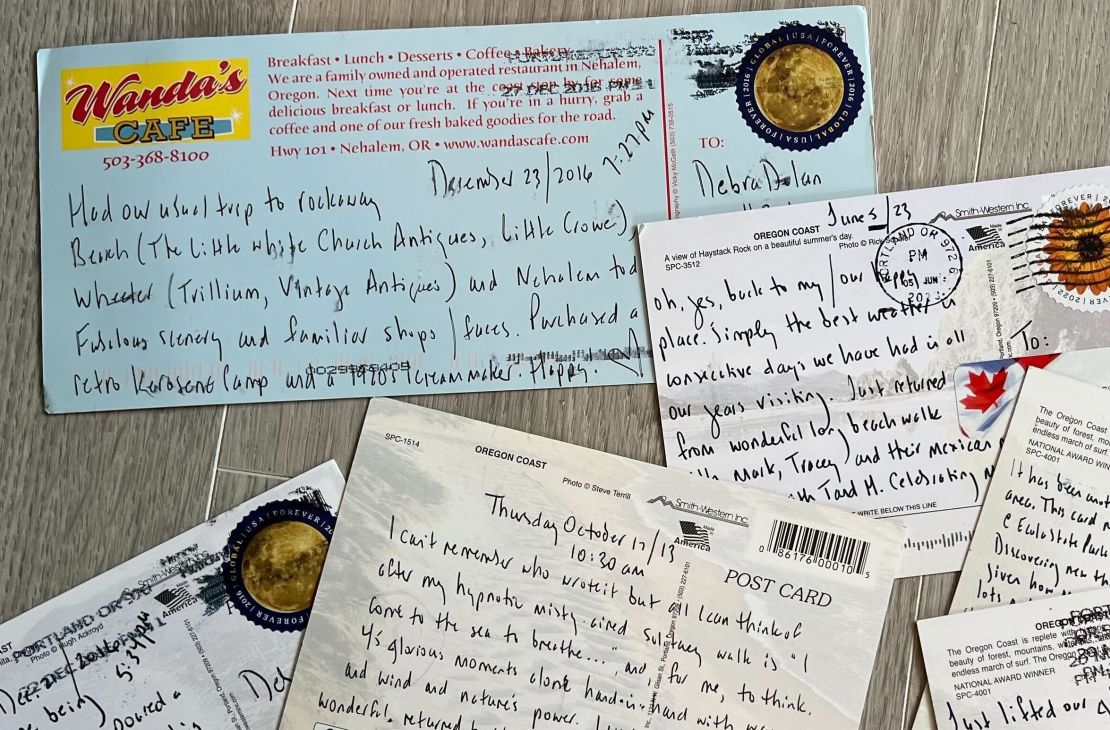 Wanda's
CAFE
503-368-8100
Breakfast • Lunch • Desserts • Coffee • Bakery
We are a family owned and operated restaurant in Nehalem,
Oregon. Next time you're at the coast stop by for some
delicious breakfast or lunch. If you're in a hurry, grab a
coffee and one of our fresh baked goodies for the road.
Hwy 101 • Nehalem, OR • www.wandascafe.com
27 DEC 2016 PM
GLOBAL | USA | FOREVER | 2016
TO:
Debra Dolan
December 23/2016 7:27pm
Had our usual trip to rockaway
Beach (The Little White Church Antiques, Little Crowe),
Wheeler (Trillium, Vintage Antiques) and Nehalem tod
Fabulous scenery and familiar shops / faces. Purchased a
retro Kerosene Lamp and a 1970s icecream maker. Happy.
June 5/23
OREGON COAST
A view of Haystack Rock on a beautiful summer's day.
SPC-3512
Photo © Rick
Smith-Western Inc
America
PORTLAND OR 972
PM
05 JUN
2023
FOREVER
To:
oh, yes, back to my / our happy
place. Simply the best weather in
consecutive days we have had in all
our years visiting. Just returned
from wonderful long beach walk
Mark, Tracey and their Mexican
Todd M. Celebrating
WRITE BELOW THIS LINE
SPC-1514
OREGON COAST
Photo © Steve Terrill
Smith-Western Inc
Made in
America
0 86176 00010 5
POST CARD
Thursday October 17/13
10:30 am
I can't remember who wrote it but all I can think of
after my hypnotic misty-aired sultry walk is "I
come to the sea to breathe..." and, for me, to think.
45 glorious moments alone hand-in-hand with
and wind and nature's power.
wonderful, returned
The Oregon Coast
beauty of forest, mou
endless march of surf.
NATIONAL AWARD WINN
SPC-4001
It has been
area. This card
@ Ecola State Park
Discovering new
given how
lots
OREGON
The Oregon Coast is replete with
beauty of forest, mountains,
endless march of surf. The Oregon
NATIONAL AWARD WINNER
SPC-4001
Just lifted our
Photo © Hugh Ackroyd
PORTLAND OR
Smith-Western
America
GLOBAL | USA | FOREVER
Dec 22
5:34pm
being)
poured a
Deb